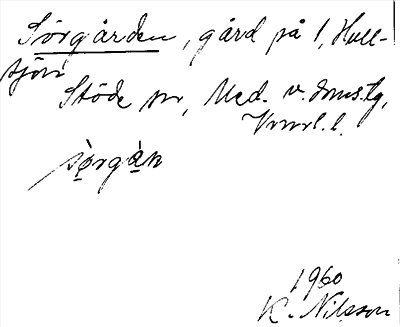 Sörgården, gård på 1, Hull-
sjön
Stöde sn, Med. v. doms.lg,
Vnrl. l.
sörgán
1960
K. Nilsson